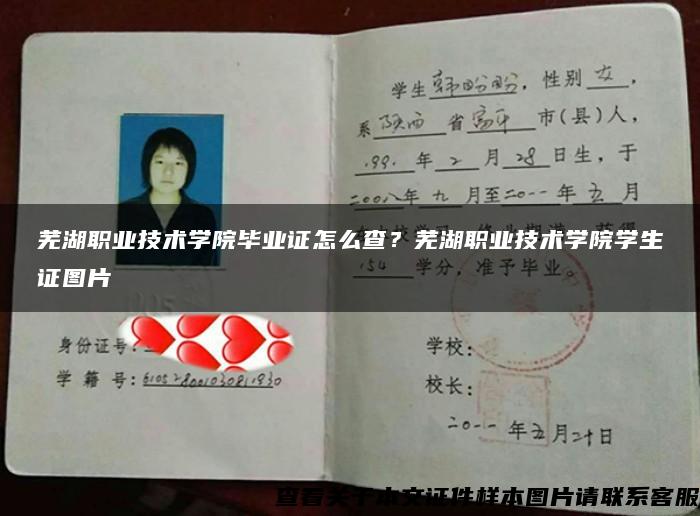 学生韩盼盼，性别女，
系陕西省富平市(县)人，
1991年2月28日生，于
二00八年九月至二0一一年五月
芜湖职业技术学院毕业证怎么查？芜湖职业技术学院学生
证图片
154学分，准予毕业。
身份证号：
学籍号：610528001030811930
学校：
校长：
二0一一年五月二十日
查看关于本文证件样本图片请联系客服